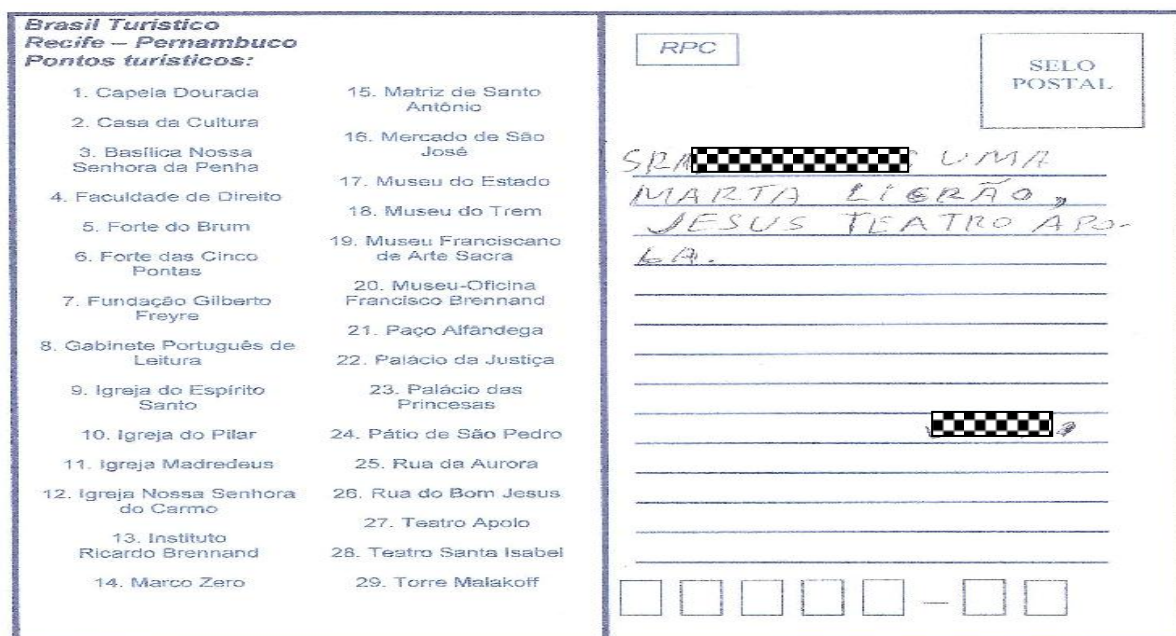 Brasil Turístico
Recife – Pernambuco
Pontos turísticos:
1. Capela Dourada
2. Casa da Cultura
3. Basílica Nossa
Senhora da Penha
4. Faculdade de Direito
5. Forte do Brum
6. Forte das Cinco
Pontas
7. Fundação Gilberto
Freyre
8. Gabinete Português de
Leitura
9. Igreja do Espírito
Santo
10. Igreja do Pilar
11. Igreja Madredeus
12. Igreja Nossa Senhora
do Carmo
13. Instituto
Ricardo Brennand
14. Marco Zero
15. Matriz de Santo
Antônio
16. Mercado de São
José
17. Museu do Estado
18. Museu do Trem
19. Museu Franciscano
de Arte Sacra
20. Museu-Oficina
Francisco Brennand
21. Paço Alfândega
22. Palácio da Justiça
23. Palácio das
Princesas
24. Pátio de São Pedro
25. Rua da Aurora
26. Rua do Bom Jesus
27. Teatro Apolo
28. Teatro Santa Isabel
29. Torre Malakoff
RPC
SELO
POSTAL
UMA
MARTA
JESUS TEATRO APO-